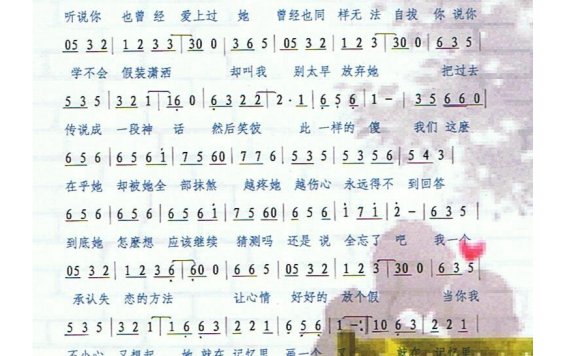 听说你 也曾 经 爱上过 她 曾经也同 样无 法 自拔 你 说你
05 3 2 | 1 2 3 3 | 30 0 | 6 3 5 | 05 3 2 | 1 2 3 3 | 30 0 | 6 3 5 |
学不会 假装潇洒 却叫我 别太早 放弃她 把过去
5 3 5 | 3 2 1 1 | 16 0 | 6 3 2 2 | 2 · 1 | 6 5 6 | 1 – | 3 5 6 6 0 |
传说成 一段神 话 然后笑 此 一样的 傻 我们 这麽
6 5 6 | 6 5 6 i | 7 5 60 | 7 7 6 | 5 3 5 | 5 3 5 6 | 5 4 3 |
在乎她 却被她全 部抹煞 越疼她 越伤心 永远得不 到回答
6 5 6 | 6 5 6 i | 7 5 60 | 6 5 6 | 6 5 6 | i 7 i | 2 – | 6 3 5 |
到底她 怎麽想 应该继续 猜测吗 还是 说 全忘了 吧 我一个
05 3 2 | 1 2 3 6 | 6 0 0 | 6 3 5 | 05 3 2 | 1 2 3 3 | 30 0 | 6 3 5 |
承认失 恋的方法 让心情 好好的 放个假 当你我
5 3 5 | 3 2 1 1 | 1 6 6 3 | 2 2 1 | 6 5 6 | 1 – :| 10 6 3 | 2 2 1 |
不小心 又想起 她 就在 记忆里 画一个 叉 就在 记忆里